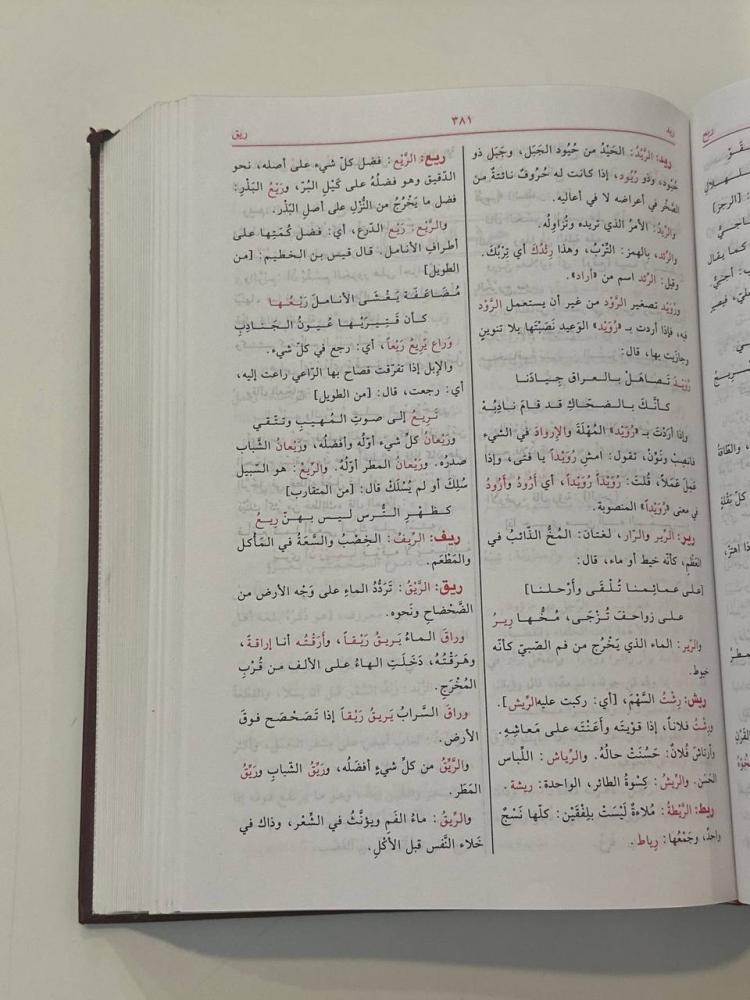 ريد
٣٨١
ريق
ريد: الرَّيْدُ: الحَيْدُ من حُيُود الجَبَل، وجَبَل ذو
حُيُود، وذو رُيُود، إذا كانت له حُروفٌ ناتئةٌ من
الصَّخْر في أعراضه لا في أعاليه.
والرِّيدُ: الأمرُ الذي تريده وتُزاوِلُه.
والرِّئد، بالهمز: التِّرْبُ، وهذا رِئدُكَ أي تِرْبُكَ.
وقيل: الرِّئد اسم من «أراد».
ورُوَيْد تصغير الرَّوْد من غير أن يستعمل الرَّوْد
فيه، فإذا أردت بـ «رُوَيْد» الوَعيد نَصَبْتَها بلا تنوين
وجازيت بها، قال:
رُوَيْدَ تَصاهَلْ بالعراق جِيادَنا
كأنّكَ بالضحّاكِ قد قامَ نادِبُهْ
وإذا أرَدْتَ بـ «رُوَيْد» المُهْلَةَ والإروادَ في الشيء
فانصِبْ ونَوِّنْ، تقول: امشِ رُوَيْداً يا فتى، وإذا
عَمِلَ عَمَلاً، قُلتَ: رُوَيْداً رُوَيْداً، أي أرْوِدْ وأرْوِدْ
في معنى «رُوَيْداً» المنصوبة.
رير: الرَّير والرَّار، لغتان: المُخُّ الذّائبُ في
العَظْم، كأنّه خيط أو ماء، قال:
[على عمائمنا تُلْقَى وأَرْحلنا]
على زواحفَ تُزْجَى، مُخُّها رِيرُ
والرَّير: الماء الذي يَخْرُج من فم الصّبيّ كأنّه
خيوط.
ريش: رِشْتُ السَّهْمَ، [أي: ركبت عليه الرِّيش].
ورِشْتُ فلاناً، إذا قوّيتَه وأعَنْتَه على مَعاشِهِ.
وارتاشَ فُلانٌ: حَسُنَتْ حالُهُ. والرِّياش: اللِّباس
الحَسَن. والرِّيشُ: كِسْوةُ الطائر، الواحدة: ريشة.
ريط: الرَّيْطَةُ: مُلاءةٌ لَيْسَتْ بلِفْقَيْن: كلّها نَسْجٌ
واحدٌ، وجَمْعُها: رِياط.
ريع: الرَّيْع: فضل كلّ شيء على أصله، نحو
الدّقيق وهو فضلُهُ على كَيْلِ البُرّ، ورَيْعُ البَذْرِ:
فضل ما يَخْرُجُ من النُّزْلِ على أصلِ البَذْرِ.
والرَّيْعُ: رَيْع الدِّرع، أي: فضل كُمَّيْها على
أطرافِ الأنامل. قال قيس بن الخطيم: [من
الطويل]
مُضَاعَفَة يَغْشَى الأناملَ رَيْعُها
كأن قَتِيرَيْها عُيونُ الجَنادِبِ
وراع يَرِيعُ رَيْعاً، أي: رجع في كلّ شيء.
والإبل إذا تفرّقت فصاح بها الرّاعي راعت إليه،
أي: رجعت، قال: [من الطويل]
تَرِيعُ إلى صوتِ المُهيبِ وتتّقي
ورَيْعانُ كلِّ شيء أوّلُه وأفضلُه، ورَيْعانُ الشّباب
صدرُه. ورَيْعانُ المطر أوّلُهُ. والرِّيعُ: هو السّبيل
سُلِكَ أو لم يُسْلَكْ قال: [من المتقارب]
كظهرِ التُّرس ليس بهنّ رِيعُ
ريف: الرِّيفُ: الخِصْبُ والسَّعَةُ في المَأكَل
والمَطْعَم.
ريق: الرَّيْقُ: تَرَدُّدُ الماءِ على وَجْه الأرض من
الضَّحْضاحِ ونَحوه.
وراقَ الماءُ يَريقُ رَيْقاً، وأَرَقْتُه أنا إراقةً،
وهَرَقْتُهُ، دَخَلَتِ الهاءُ على الألف من قُرْبِ
المُخْرَجِ.
وراقَ السَّرابُ يَريقُ رَيْقاً إذا تَضَحْضَح فوقَ
الأرض.
والرَّيِّقُ من كلِّ شيءٍ أفضَلُه، ورَيِّقُ الشّبابِ ورَيِّقُ
المَطَر.
والرِّيقُ: ماءُ الفَمِ ويؤنَّثُ في الشِّعْر، وذاك في
خَلاء النَّفس قبل الأكْلِ.